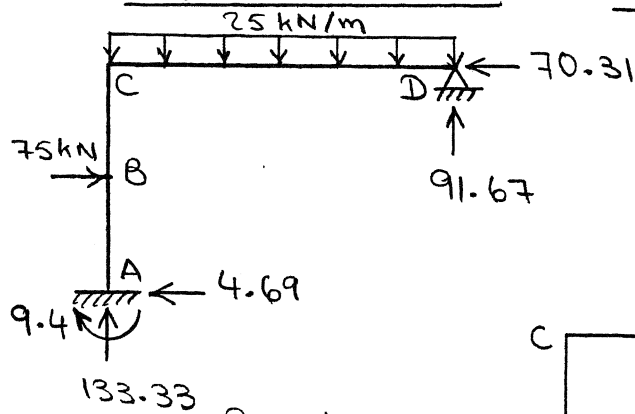 25 kN/m
C
D
70.31
75kN
B
91.67
A
4.69
9.4
133.33
C